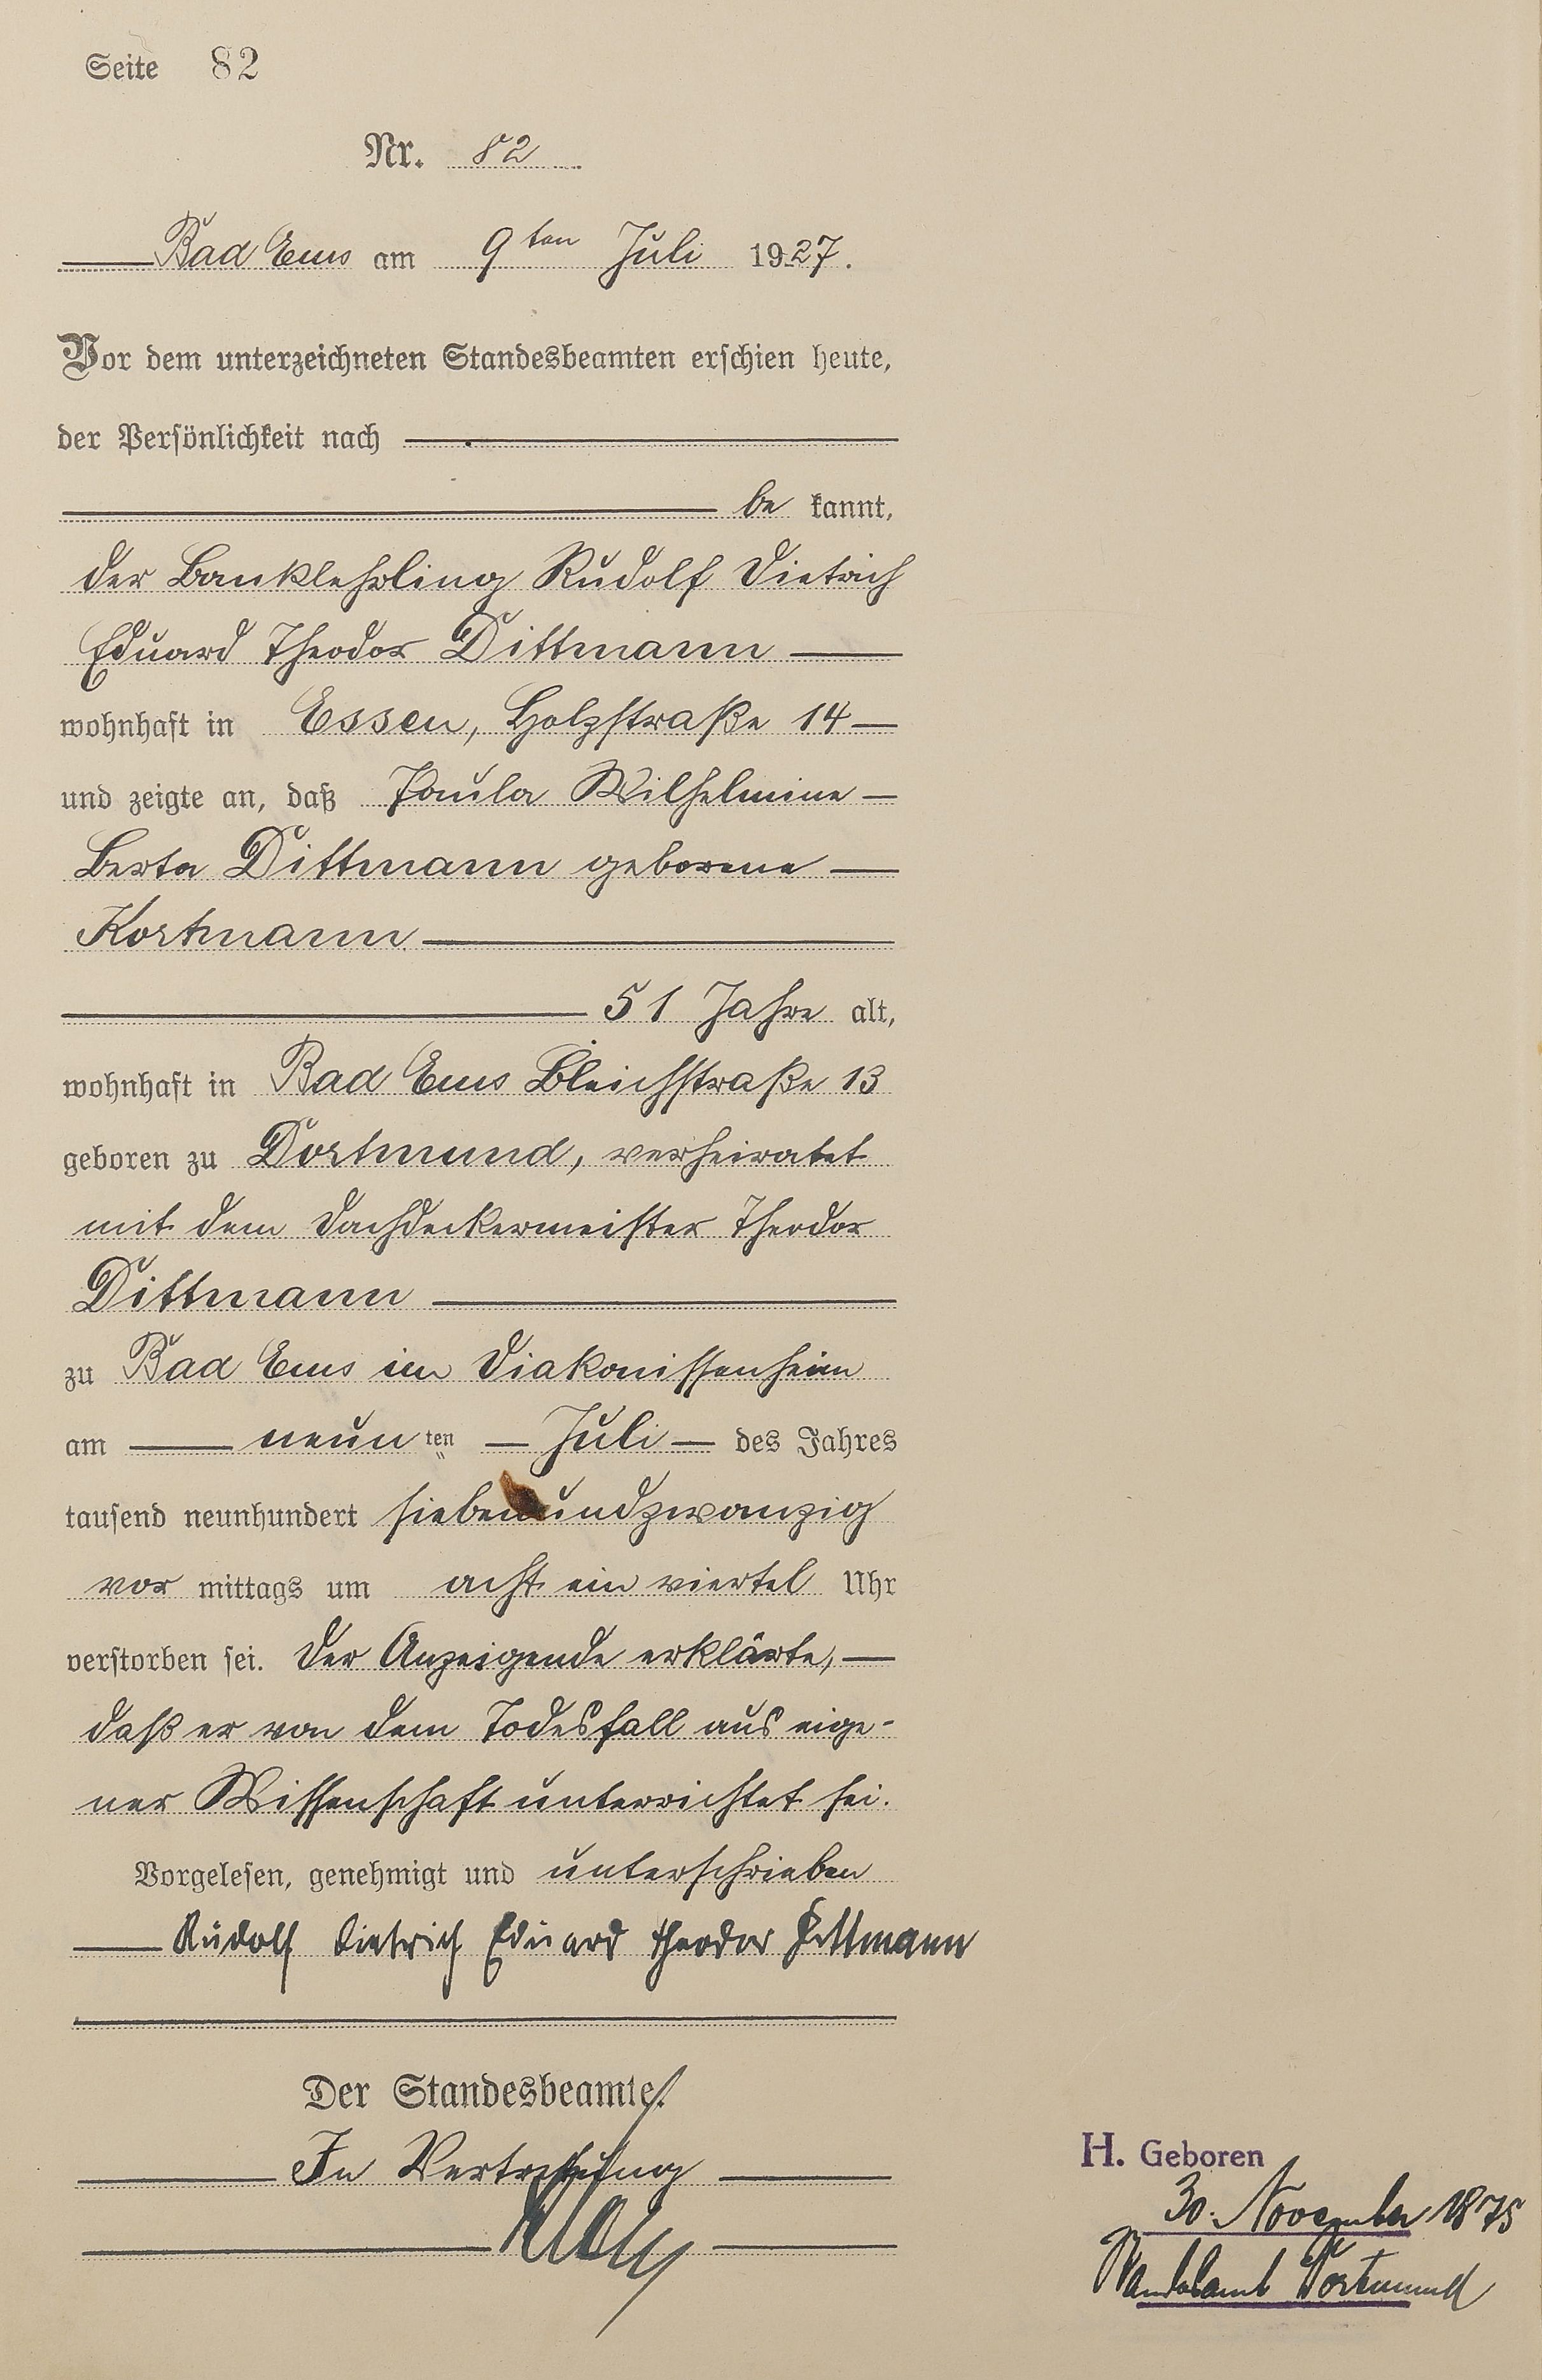 Seite 82
Nr. 82
Bad Ems am 9ten Juli 1927.
Vor dem unterzeichneten Standesbeamten erschien heute,
der Persönlichkeit nach
be kannt,
der Banklehrling Rudolf Dietrich
Eduard Theodor Dittmann
wohnhaft in Essen, Holzstraße 14
und zeigte an, daß Paula Wilhelmine
Berta Dittmann geborene
Kortmann
51 Jahre alt,
wohnhaft in Bad Ems Bleichstraße 13
geboren zu Dortmund, verheiratet
mit dem Dachdeckermeister Theodor
Dittmann
zu Bad Ems im Diakonissenheim
am neun ten Juli des Jahres
tausend neunhundert siebenundzwanzig
vor mittags um acht ein viertel Uhr
verstorben sei. Der Anzeigende erklärte,
daß er von dem Todesfall aus eige-
ner Wissenschaft unterrichtet sei.
Vorgelesen, genehmigt und unterschrieben
Rudolf Dietrich Eduard Theodor Dittmann
Der Standesbeamte.
In Vertretung
H. Geboren
30. November 1875
Standesamt Dortmund